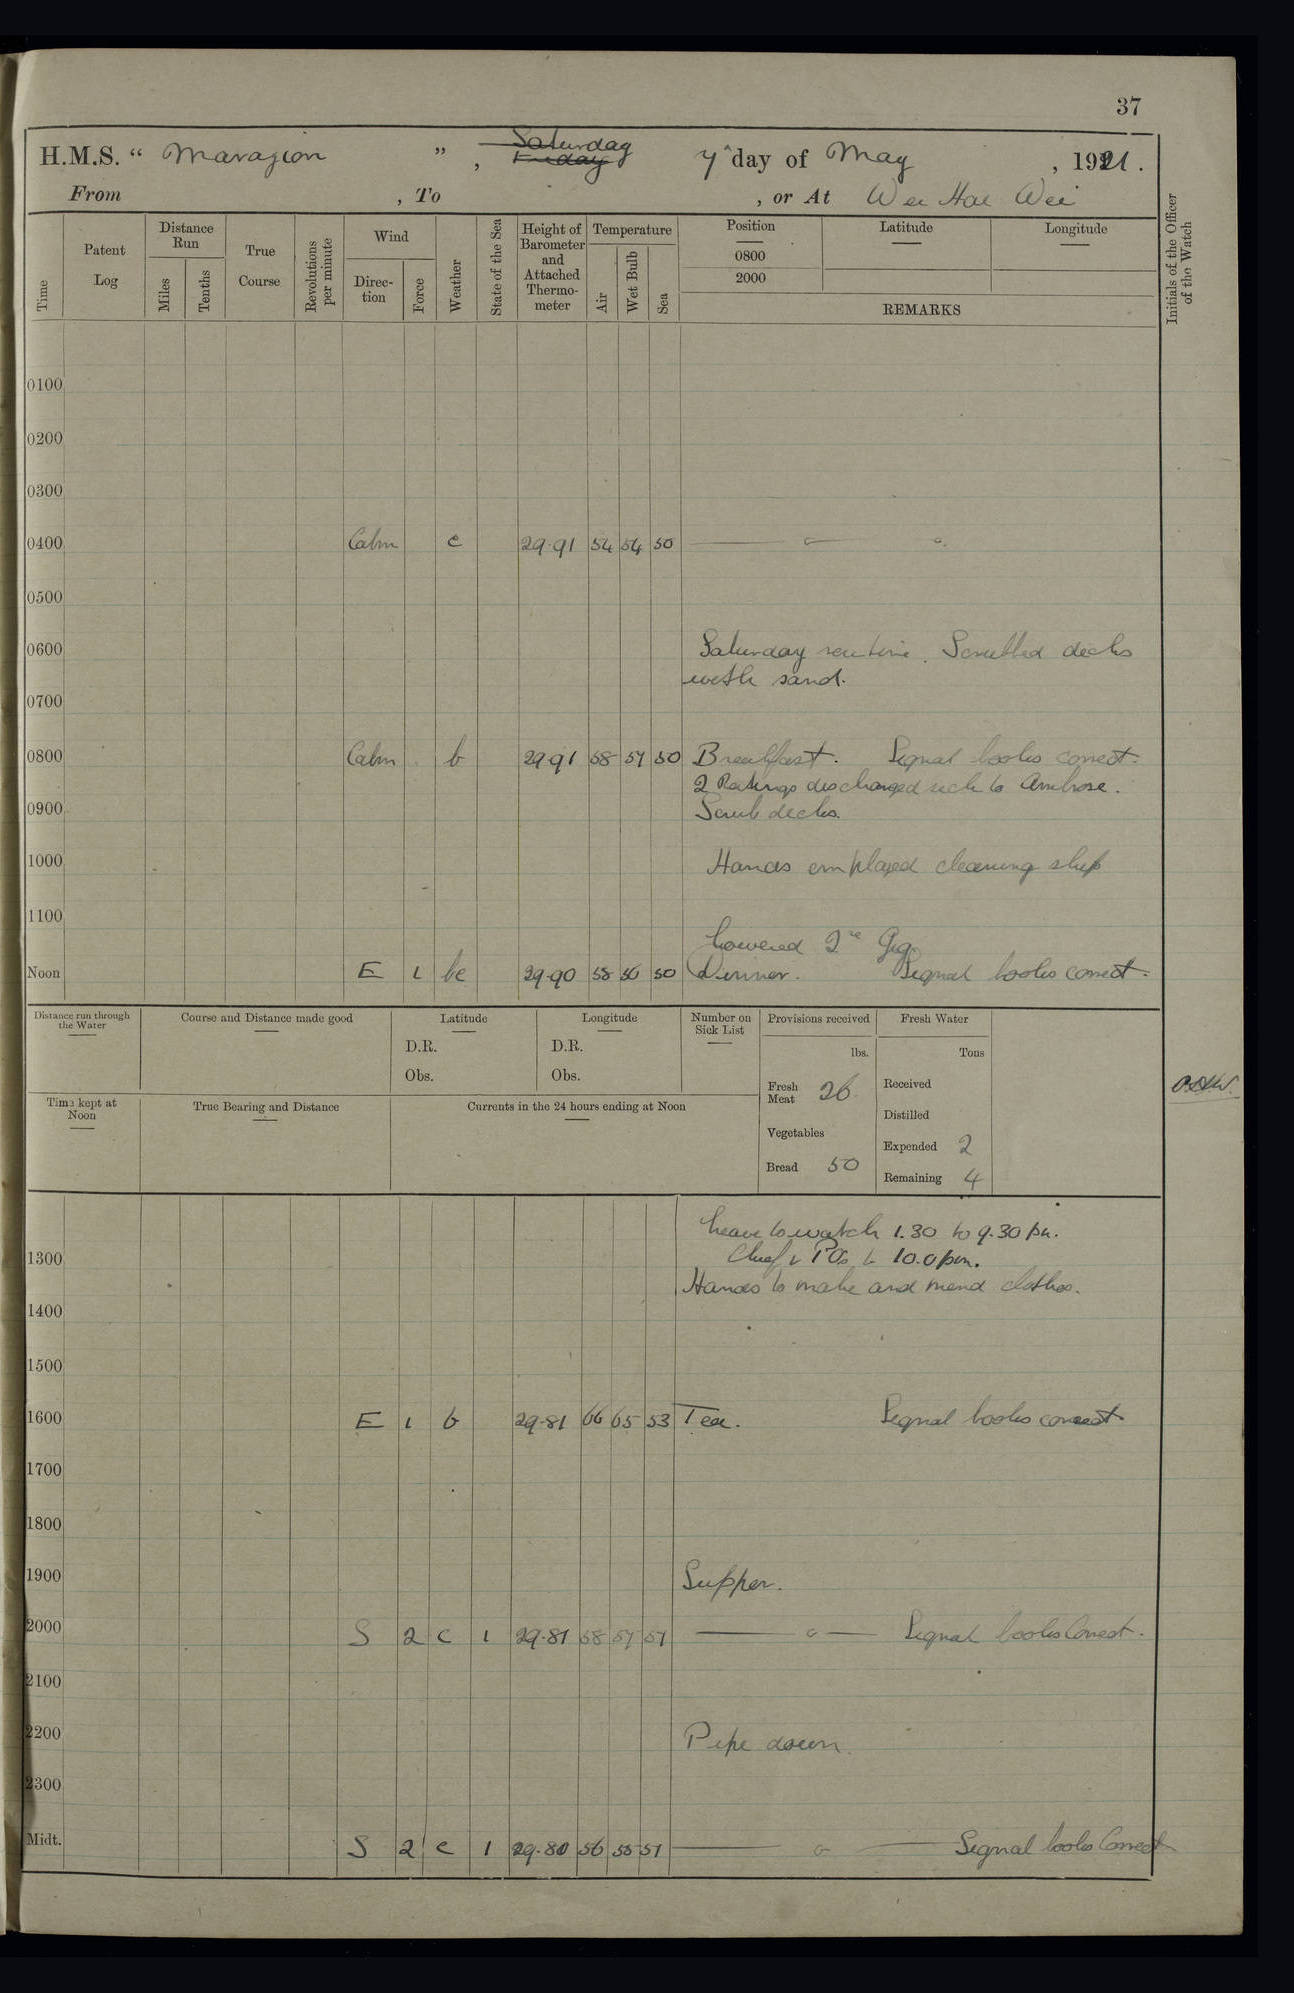 37
H.M.S. “ Marazion ” , Saturday Friday 7th day of May , 1921.
From , To , or At Wei Hai Wei
Time
Patent Log
Distance Run
Miles
Tenths
True Course
Revolutions per minute
Wind
Direction
Force
Weather
State of the Sea
Height of Barometer and Attached Thermometer
Temperature
Air
Wet Bulb
Sea
Position
0800
2000
Latitude
Longitude
REMARKS
Initials of the Officer of the Watch
0100
0200
0300
0400 Calm c 29.91 54 54 50
0500
0600 Saturday routine. Scrubbed decks
with sand.
0700
0800 Calm b 29.91 58 57 50 Breakfast. Signal books correct.
2 Ratings discharged sick to Ambrose.
0900 Scrub decks.
1000 Hands employed cleaning ship
1100
Lowered 2nd Gig.
Noon E 1 bc 29.90 58 56 50 Dinner. Signal books correct.
Distance run through the Water
Course and Distance made good
Latitude
D.R.
Obs.
Longitude
D.R.
Obs.
Number on Sick List
Provisions received
lbs.
Fresh Meat 26
Vegetables
Bread 50
Fresh Water
Tons
Received
Distilled
Expended 2
Remaining 4
Time kept at Noon
True Bearing and Distance
Currents in the 24 hours ending at Noon
Leave to watch 1.30 to 9.30 pm.
1300 Chief & POs to 10.0 pm.
Hands to make and mend clothes.
1400
1500
1600 E 1 b 29.81 66 65 53 Tea. Signal books correct
1700
1800
1900 Supper.
2000 S 2 c 1 29.81 58 57 51 Signal books Correct.
2100
2200 Pipe down.
2300
Midt. S 2 c 1 29.80 56 55 51 Signal books Correct